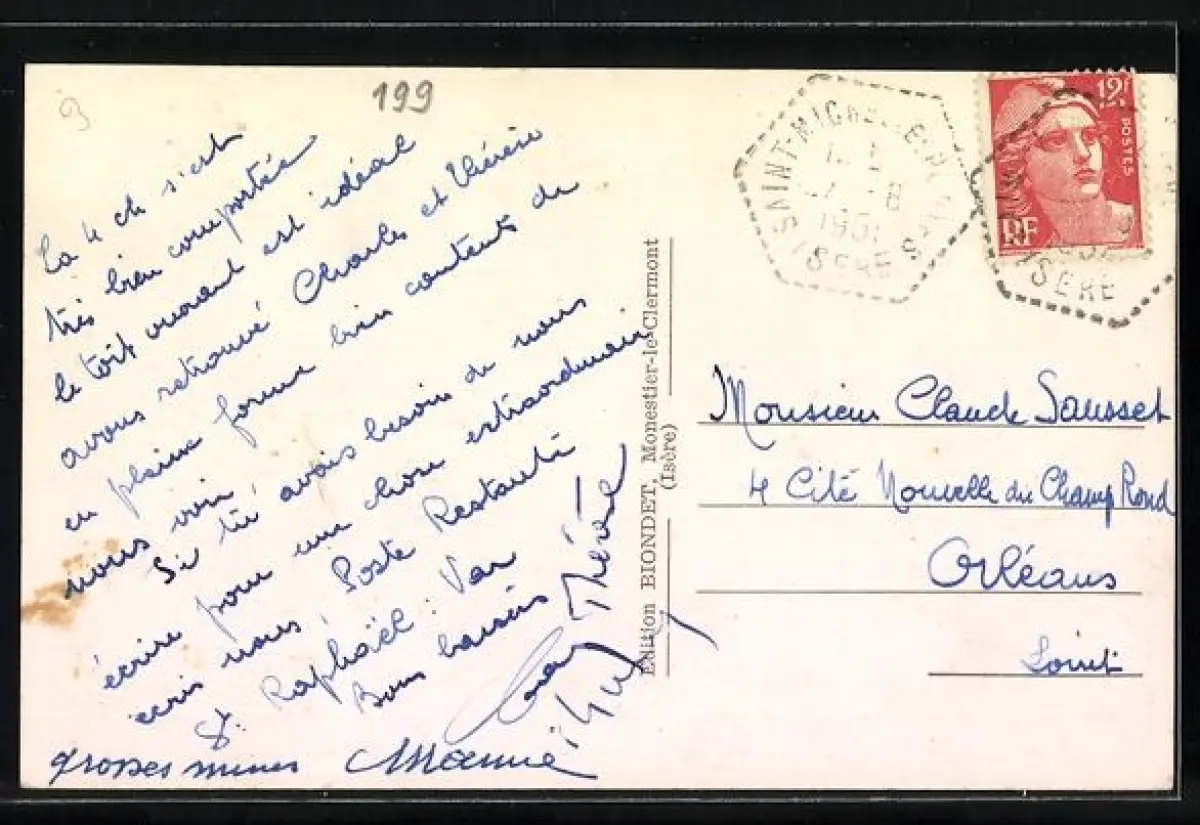 199
La 4 ch s'est
très bien comportée
le toit ouvrant est idéal
avons retrouvé Charles et Thérèse
en pleine forme bien contents de
nous voir.
Si tu avais besoin de nous
écrire pour une chose extraordinaire
écris nous, Poste Restante
St. Raphaël : Var
Bons baisers
Thérèse
grosses mimis Mamie
Edition BIONDET, Monestier-le-Clermont
(Isère)
SAINT-MICHEL
1951
ISERE
12F
POSTES
RF
ISERE
Monsieur Claude Sausset
4 Cité Nouvelle du Champ Rond
Orléans
Loiret